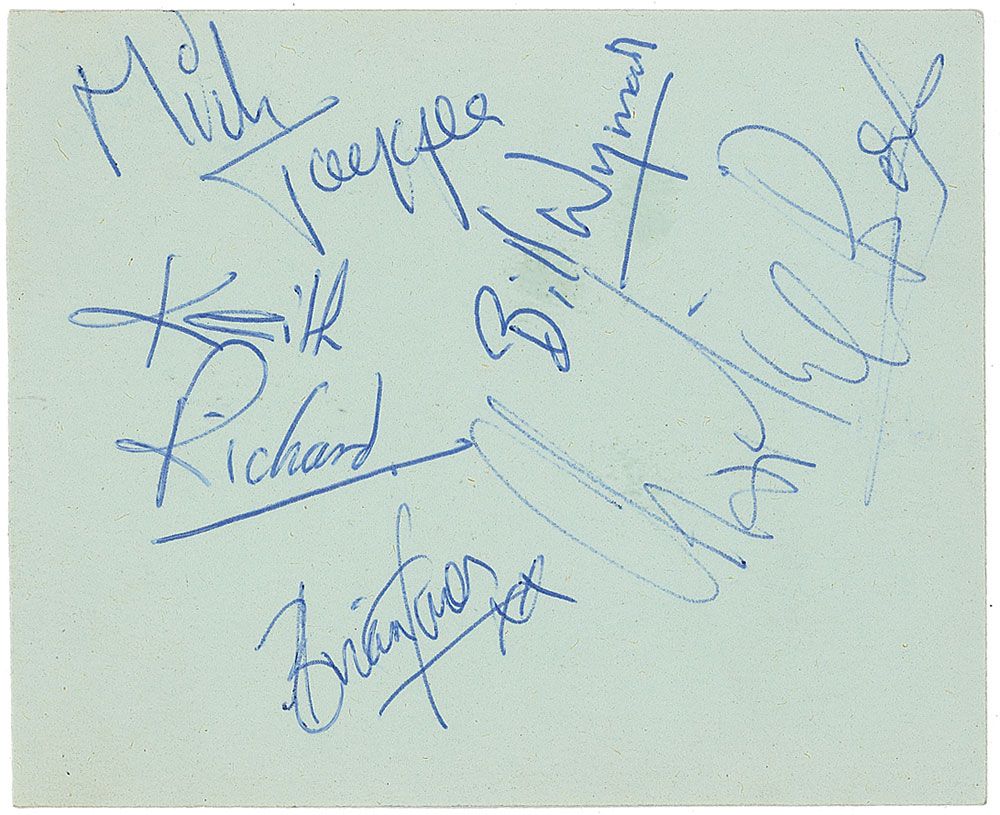 Mick
Jagger
Bill Wyman
Keith
Richard
Brian Jones xx